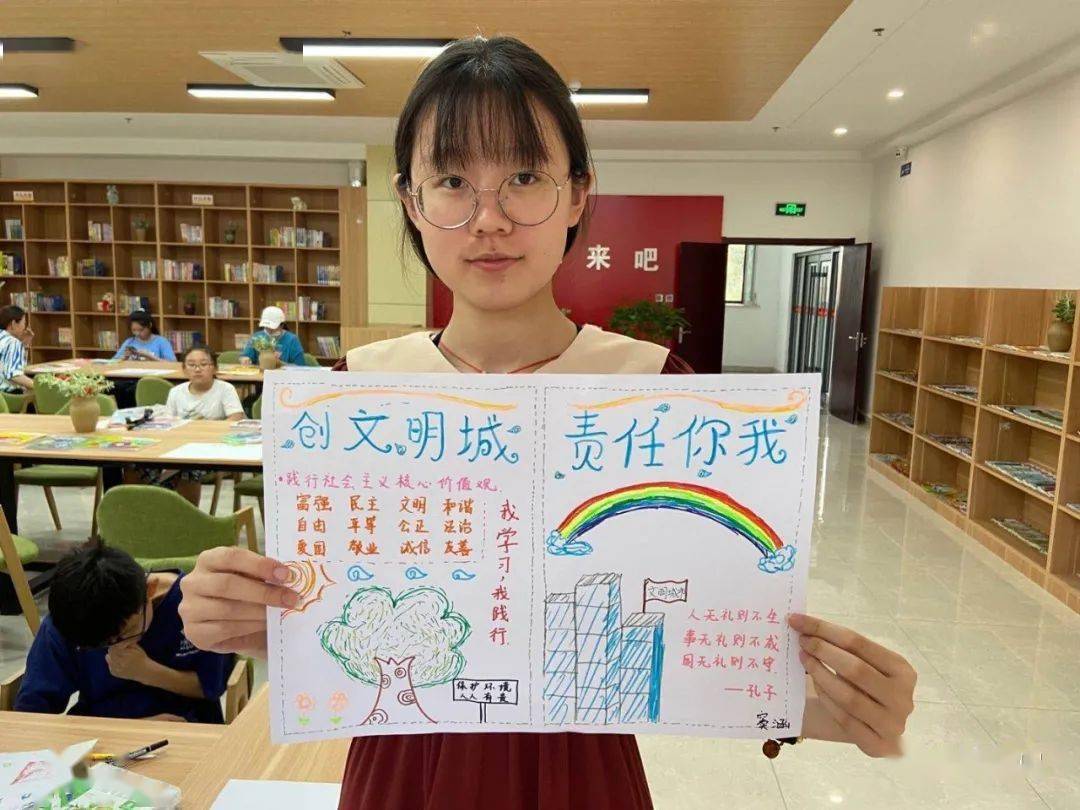 来吧
创文明城
责任你我
•践行社会主义核心价值观.
富强 民主 文明 和谐
自由 平等 公正 法治
爱国 敬业 诚信 友善
我学习,我践行.
保护环境
人人有责
文明城市
人无礼则不生
事无礼则不成
国无礼则不宁.
——孔子
窦涵